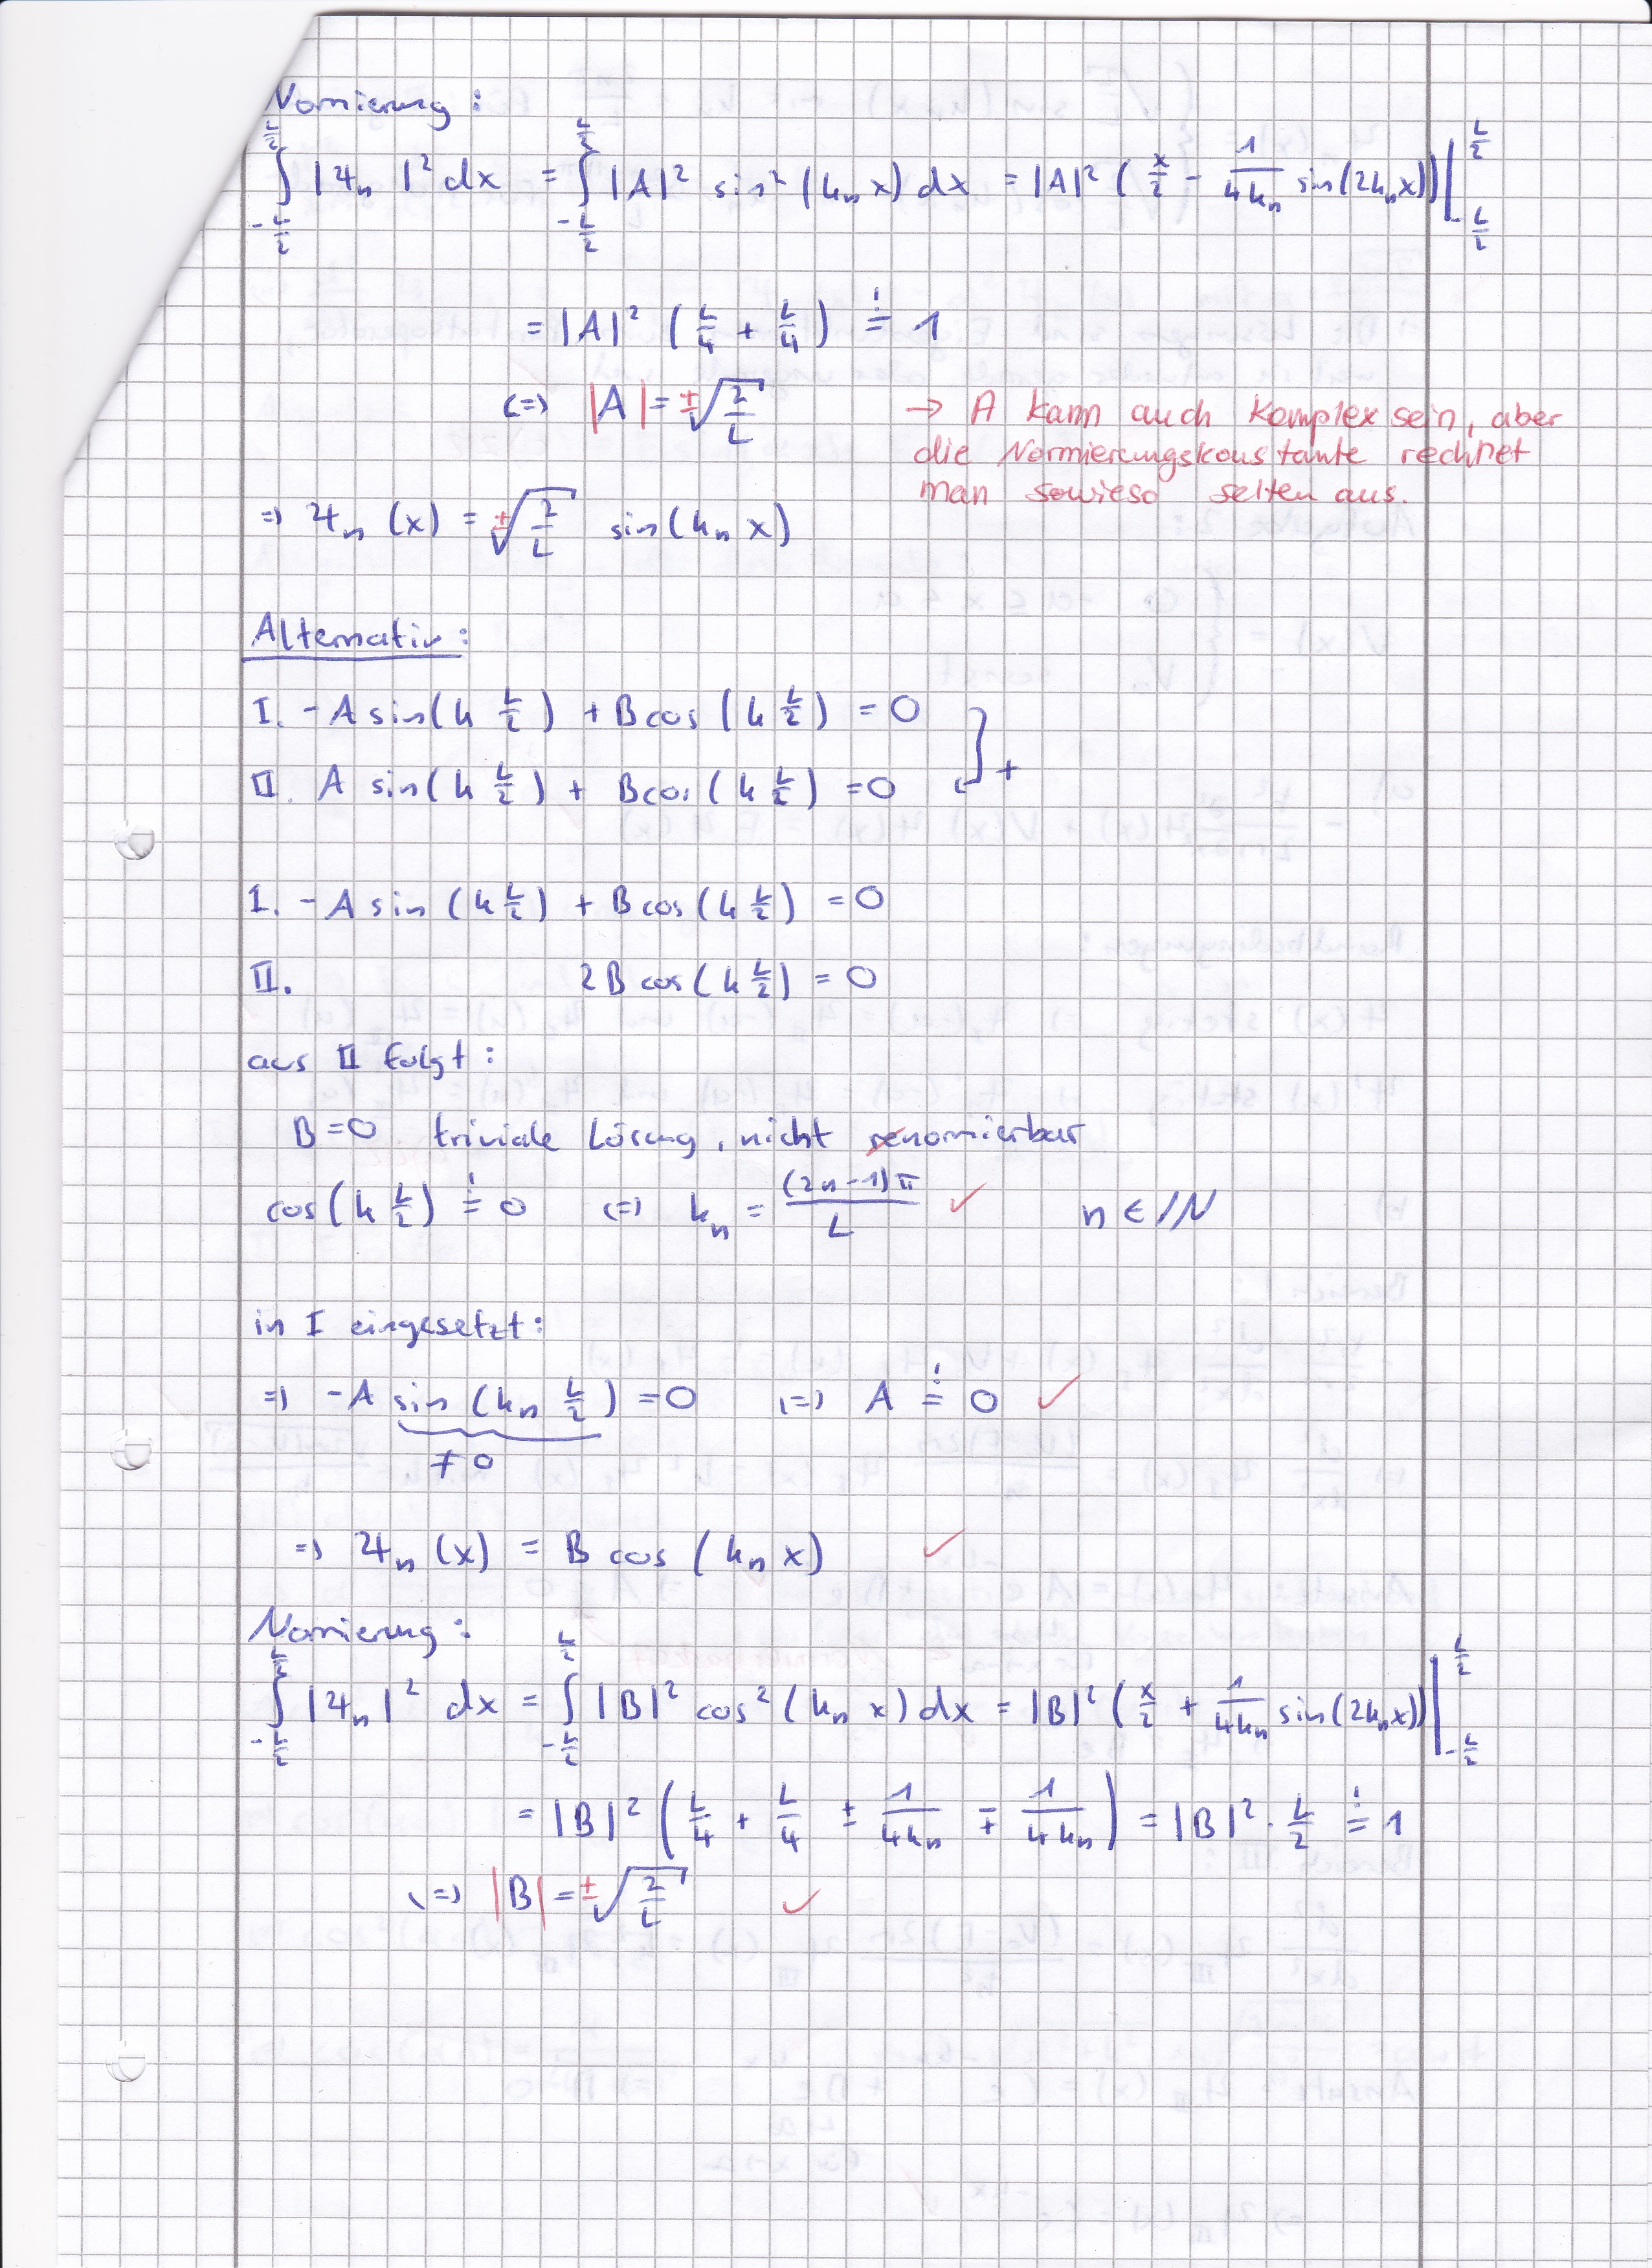 Normierung:
∫_{-L/2}^{L/2} |Ψ_n|² dx = ∫_{-L/2}^{L/2} |A|² sin²(k_n x) dx = |A|² (x/2 - 1/(4k_n) sin(2k_n x)) |_{-L/2}^{L/2}
= |A|² (L/4 + L/4) =! 1
<=> |A| = ±√(2/L) → A kann auch komplex sein, aber
die Normierungskonstante rechnet
man sowieso selten aus.
=> Ψ_n (x) = ±√(2/L) sin(k_n x)
Alternativ:
I. -A sin(k L/2) + B cos(k L/2) = 0
II. A sin(k L/2) + B cos(k L/2) = 0 +
I. -A sin(k L/2) + B cos(k L/2) = 0
II. 2B cos(k L/2) = 0
aus II folgt:
B=0 triviale Lösung, nicht renormierbar
cos(k L/2) =! 0 <=> k_n = (2n-1)π/L ✓ n ∈ ℕ
in I eingesetzt:
=> -A sin(k_n L/2) = 0 <=> A =! 0 ✓
≠ 0
=> Ψ_n (x) = B cos(k_n x) ✓
Normierung:
∫_{-L/2}^{L/2} |Ψ_n|² dx = ∫_{-L/2}^{L/2} |B|² cos²(k_n x) dx = |B|² (x/2 + 1/(4k_n) sin(2k_n x)) |_{-L/2}^{L/2}
= |B|² (L/4 + L/4 ± 1/(4k_n) ∓ 1/(4k_n)) = |B|² · L/2 =! 1
<=> |B| = ±√(2/L) ✓